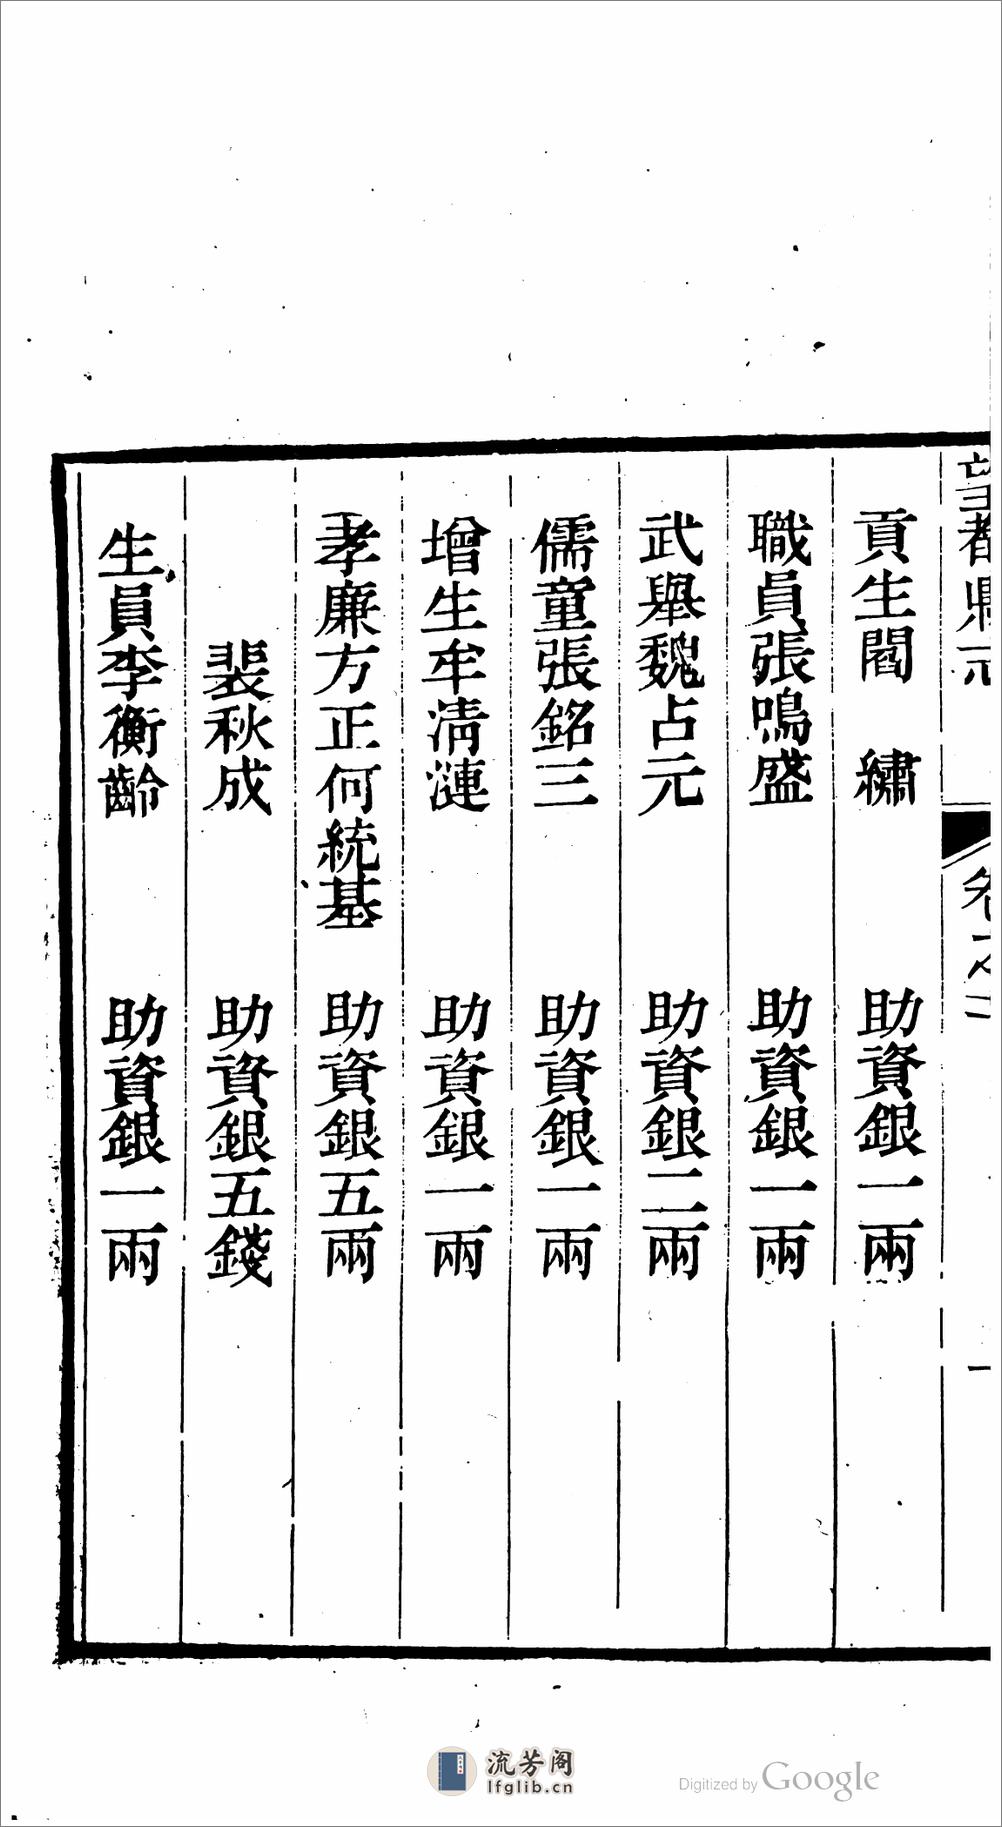 望都縣志
卷之二
一
貢生閻　繡　助資銀一兩
職員張鳴盛　助資銀一兩
武舉魏占元　助資銀二兩
儒童張銘三　助資銀一兩
增生牟清漣　助資銀一兩
孝廉方正何統基　助資銀五兩
裴秋成　助資銀五錢
生員李衡齡　助資銀一兩
流芳阁
lfglib.cn
Digitized by Google